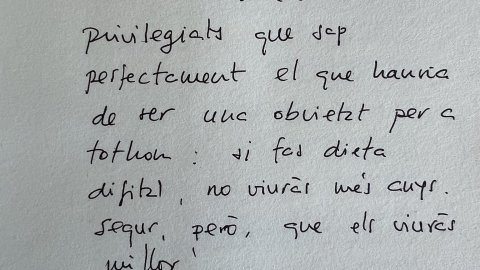 privilegiats que sap
perfectament el que hauria
de ser una obvietat per a
tothom: si fas dieta
digital, no viuràs més anys.
Segur, però, que els viuràs
millor!